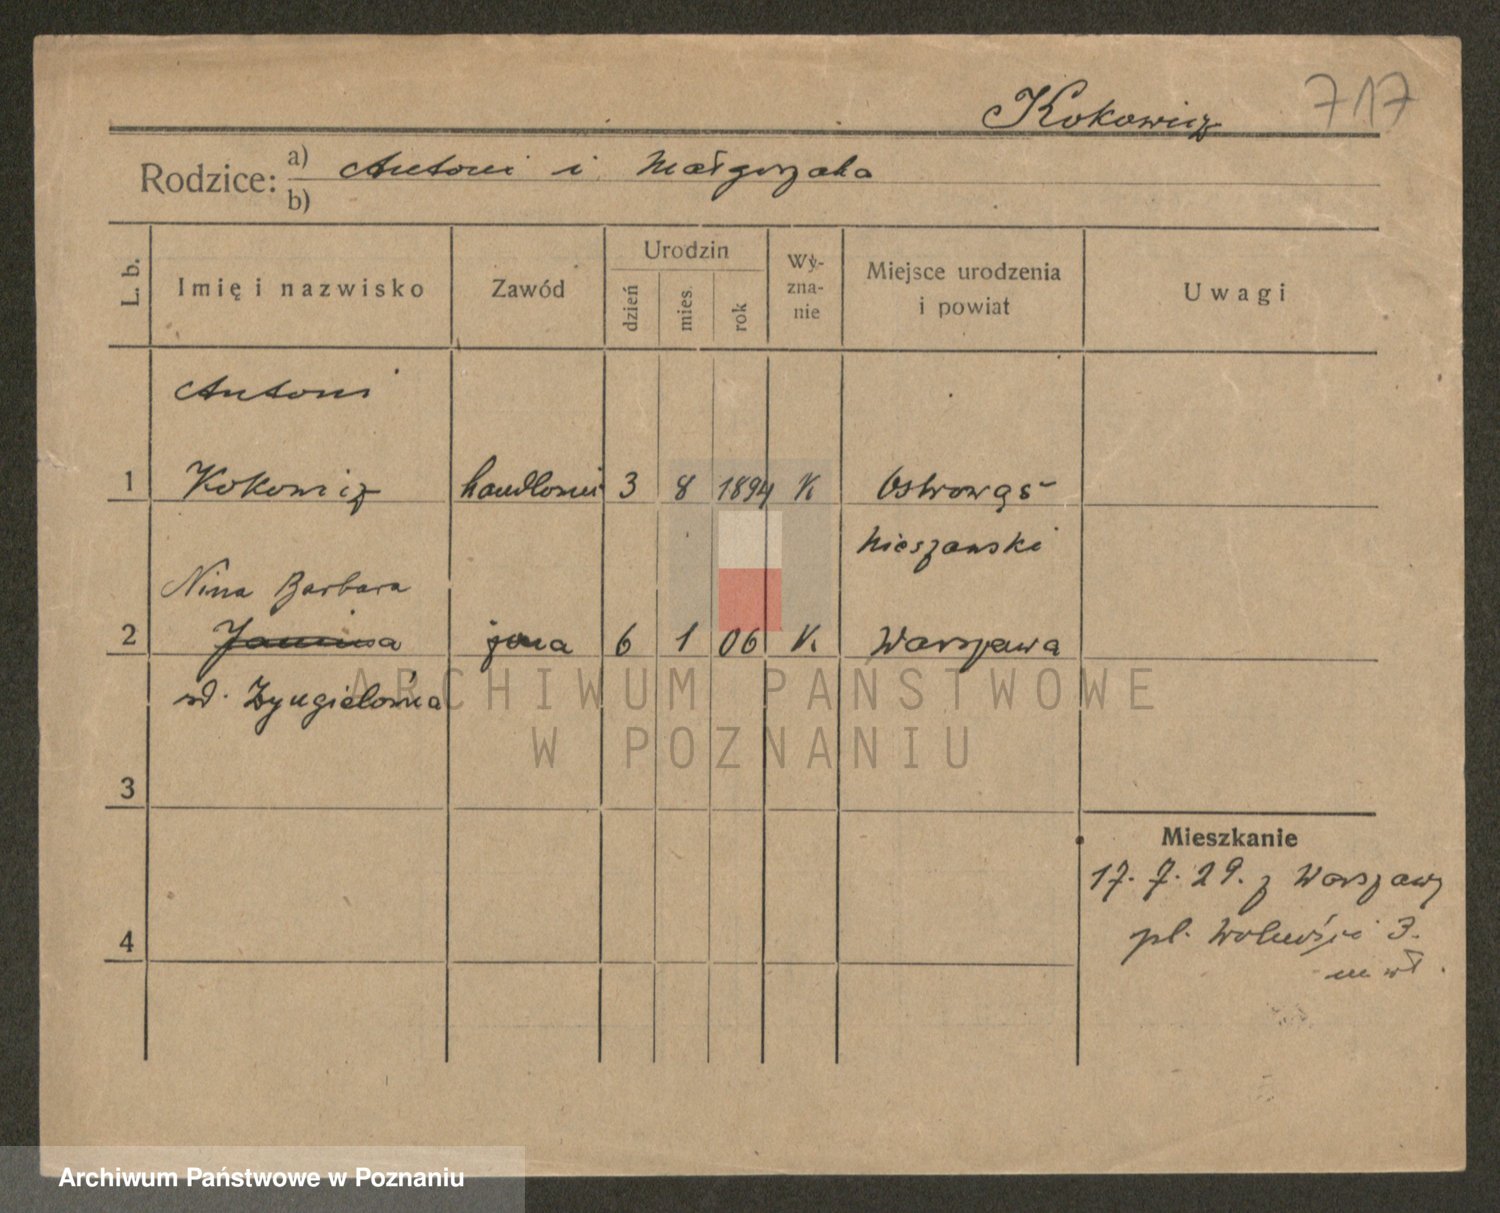 Kokowicz 717
Rodzice: a) Antoni i Małgorzata
b)
L. b. Imię i nazwisko Zawód Urodzin dzień mies. rok Wyznanie Miejsce urodzenia i powiat Uwagi
Antoni
1 Kokowicz handlowi 3 8 1894 K Ostrowąs
Nieszawski
Nina Barbara
2 Janina żona 6 1 06 K. Warszawa
3
4
Mieszkanie
17. 7. 29. z Warszawy
pl. Wolności 3.
ARCHIWUM PAŃSTWOWE
W POZNANIU
Archiwum Państwowe w Poznaniu